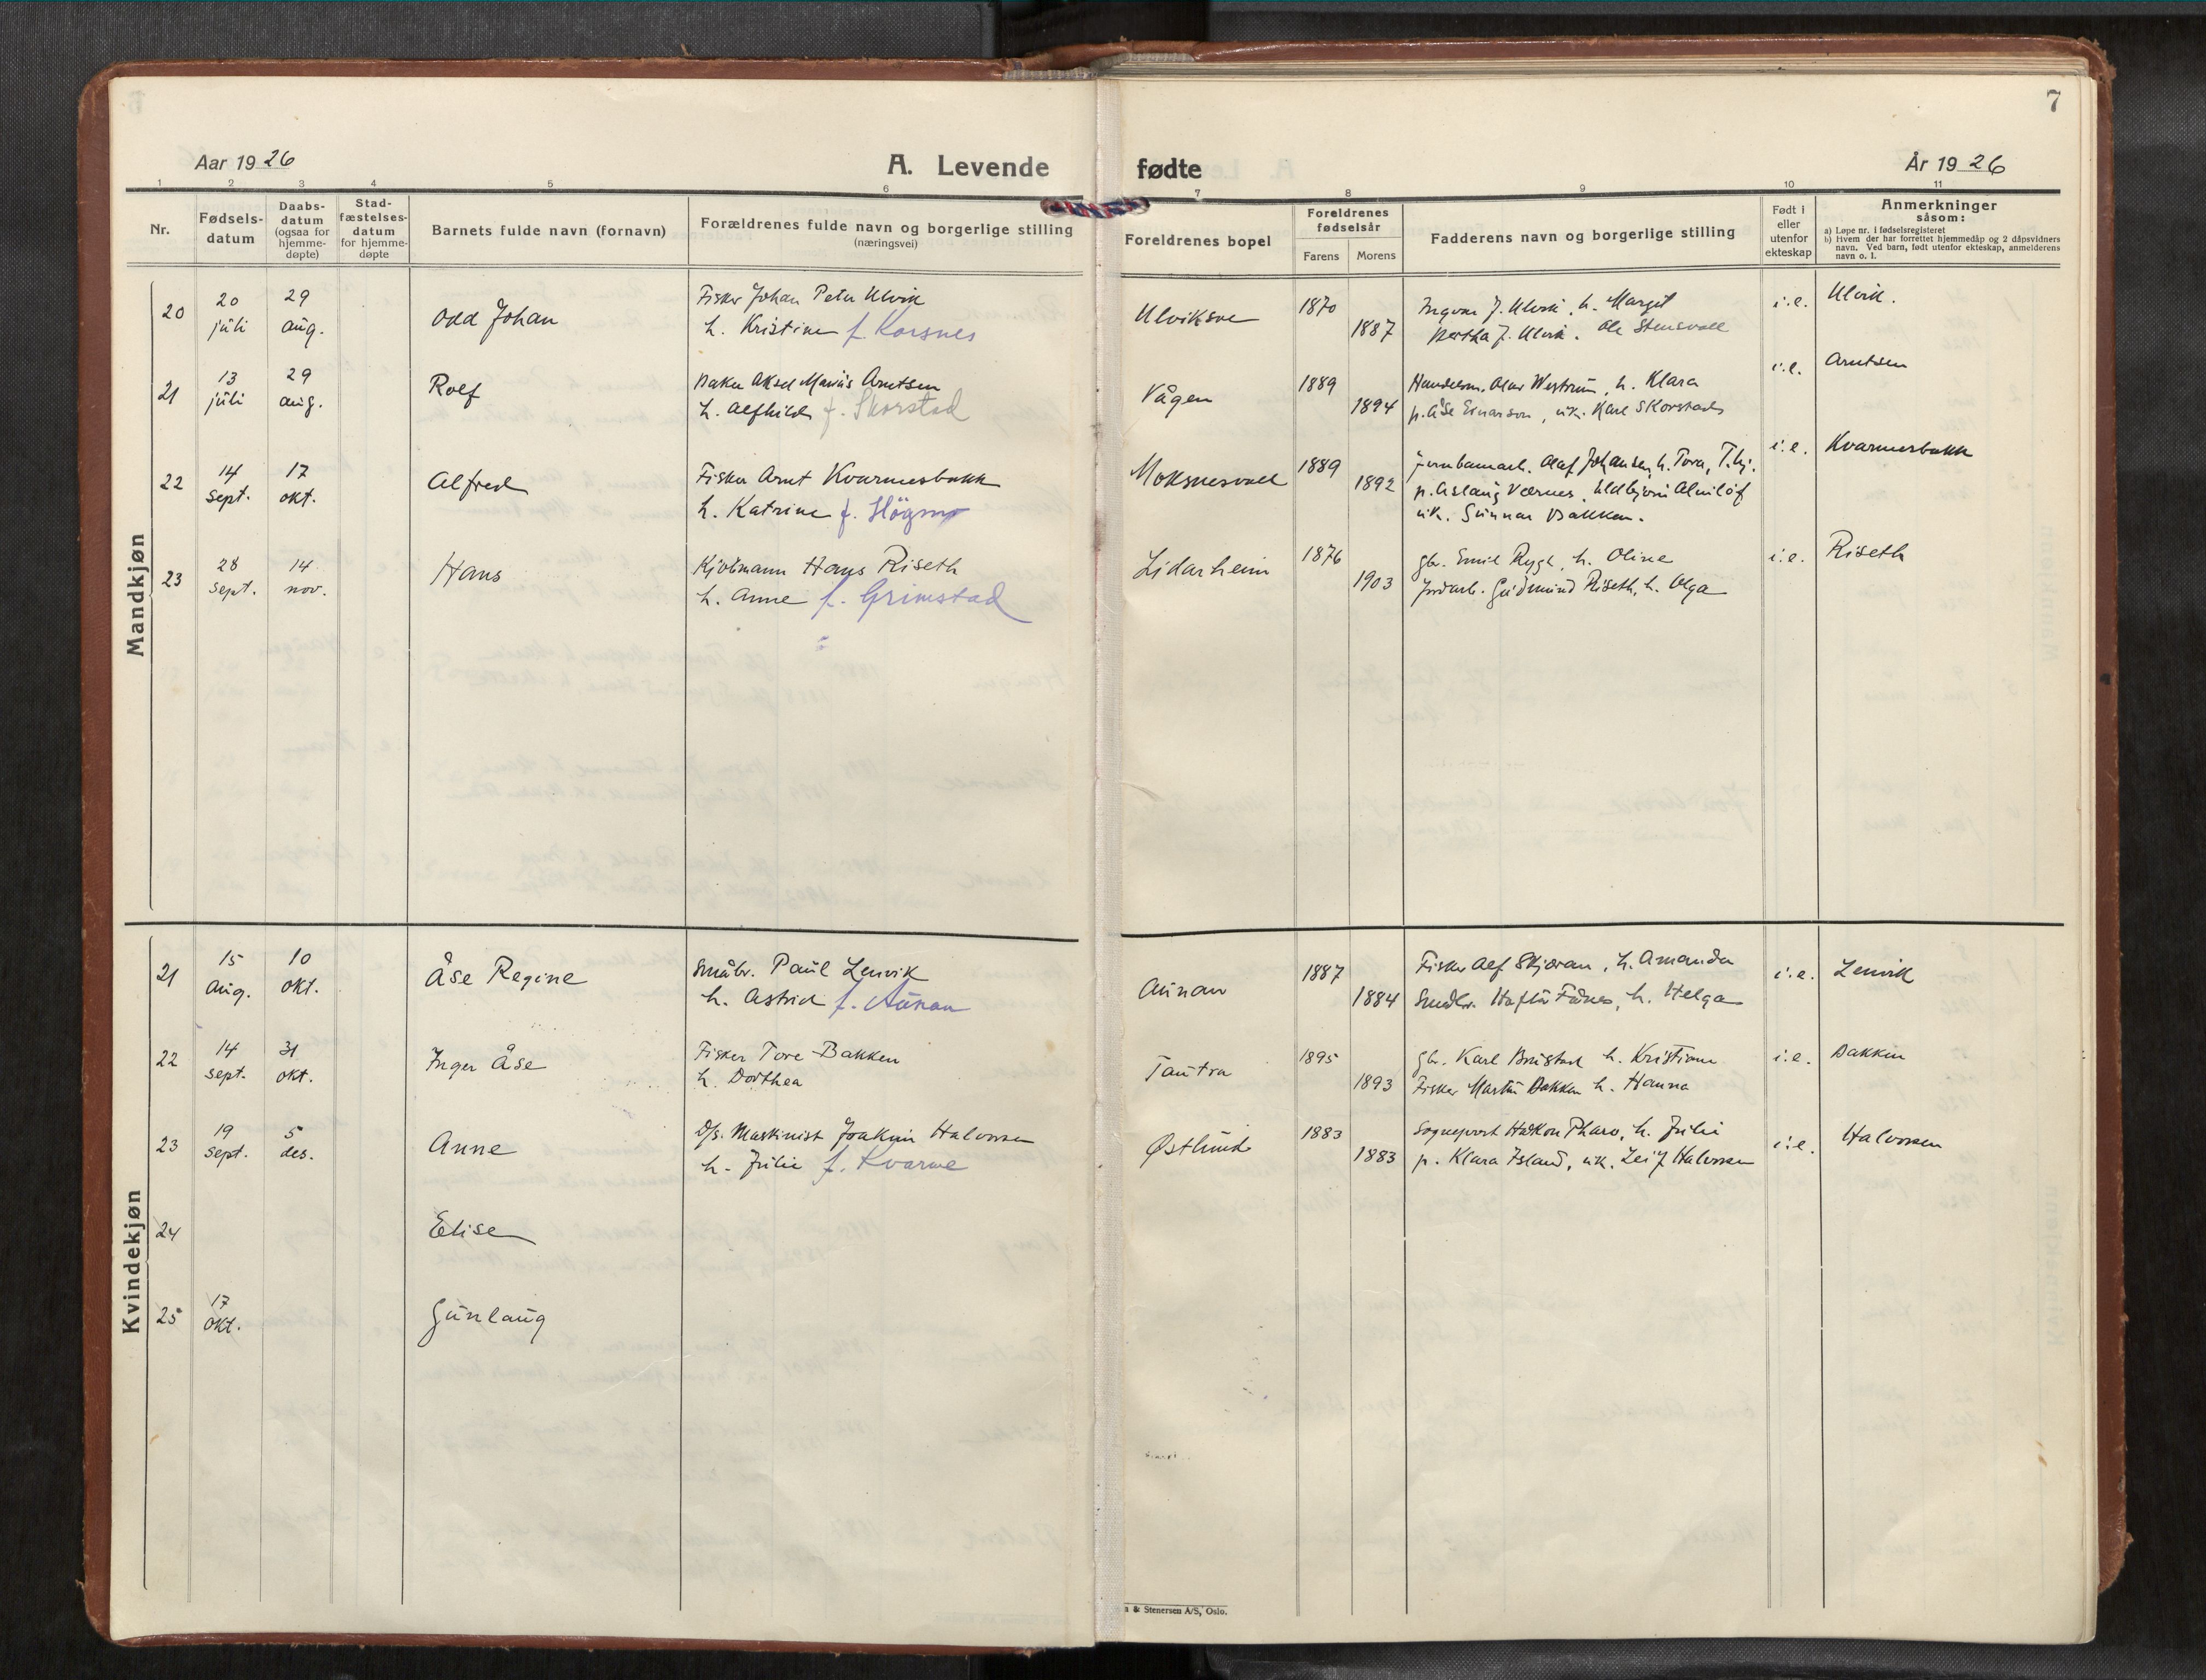 7
Aar 1926
A. Levende
fødte
År 1926
1 2 3 4 5 6 7 8 9 10 11
Nr.
Fødsels-
datum
Daabs-
datum
(ogsaa for
hjemme-
døpte)
Stad-
fæstelses-
datum
for hjemme-
døpte
Barnets fulde navn (fornavn)
Forældrenes fulde navn og borgerlige stilling
(næringsvei)
Foreldrenes bopel
Foreldrenes
fødselsår
Farens
Morens
Fadderens navn og borgerlige stilling
Født i
eller
utenfor
ekteskap
Anmerkninger
såsom:
a) Løpe nr. i fødselsregisteret
b) Hvem der har forrettet hjemmedåp og 2 dåpsvidners
navn. Ved barn, født utenfor ekteskap, anmelderens
navn o. l.
Mandkjøn
20
20
juli
29
aug.
Odd Johan
Fisker Johan Peter Ulvik
h. Kristine f. Korsnes
Ulviksve
1870
1887
Ingvar J. Ulvik, h. Margit
Bertha J. Ulvik. Ole Stensvoll
i.e.
Ulvik.
21
13
juli
29
aug.
Rolf
Baker Aksel Marius Arntsen
h. Alfhild f. Skorstad
Vågen
1889
1894
Handelsm. Olav Westrum, h. Klara
p. Åse Einarson, uk. Karl Skorstad
i.e.
Arntsen
22
14
sept.
17
okt.
Alfred
Fisker Arnt Kvarnesbakk
h. Katrine f. Högmo
Moksnesvall
1889
1892
Jernbanearb. Olaf Johansen, h. Tora, T.hj.
p. Aslaug Værnes, Eldbjørn Almlöf
uk. Gunnar Bakken.
i.e.
Kvarnesbakk
23
28
sept.
14
nov.
Hans
Kjøbmann Hans Riseth
h. Anne f. Grimstad
Lidarheim
1876
1903
gbr. Emil Rygh, h. Oline
Jordarb. Gudmund Riseth, h. Olga
i.e.
Riseth
Kvindekjøn
21
15
aug.
10
okt.
Åse Regine
Småbr. Paul Lenvik
h. Astrid f. Aunan
Aunan
1887
1884
Fisker Alf Skjæran, h. Amanda
Småbr. Haftor Fånes, h. Helga
i.e.
Lenvik
22
14
sept.
31
okt.
Inger Åse
Fisker Tore Bakken
h. Dorthea
Tautra
1895
1893
gbr. Karl Brustad h. Kristiane
Fisker Martin Bakken h. Hanna
i.e.
Bakken
23
19
sept.
5
des.
Anne
D/s. Maskinist Joakim Halvorsen
h. Julie f. Kvarme
Østlund
1883
1883
Sogneprest Haakon Pharo, h. Julie
p. Klara Island, uk. Leif Halvorsen
i.e.
Halvorsen
24
Elise
25
17
okt.
Gunlaug
& Stenersen A/S, Oslo.